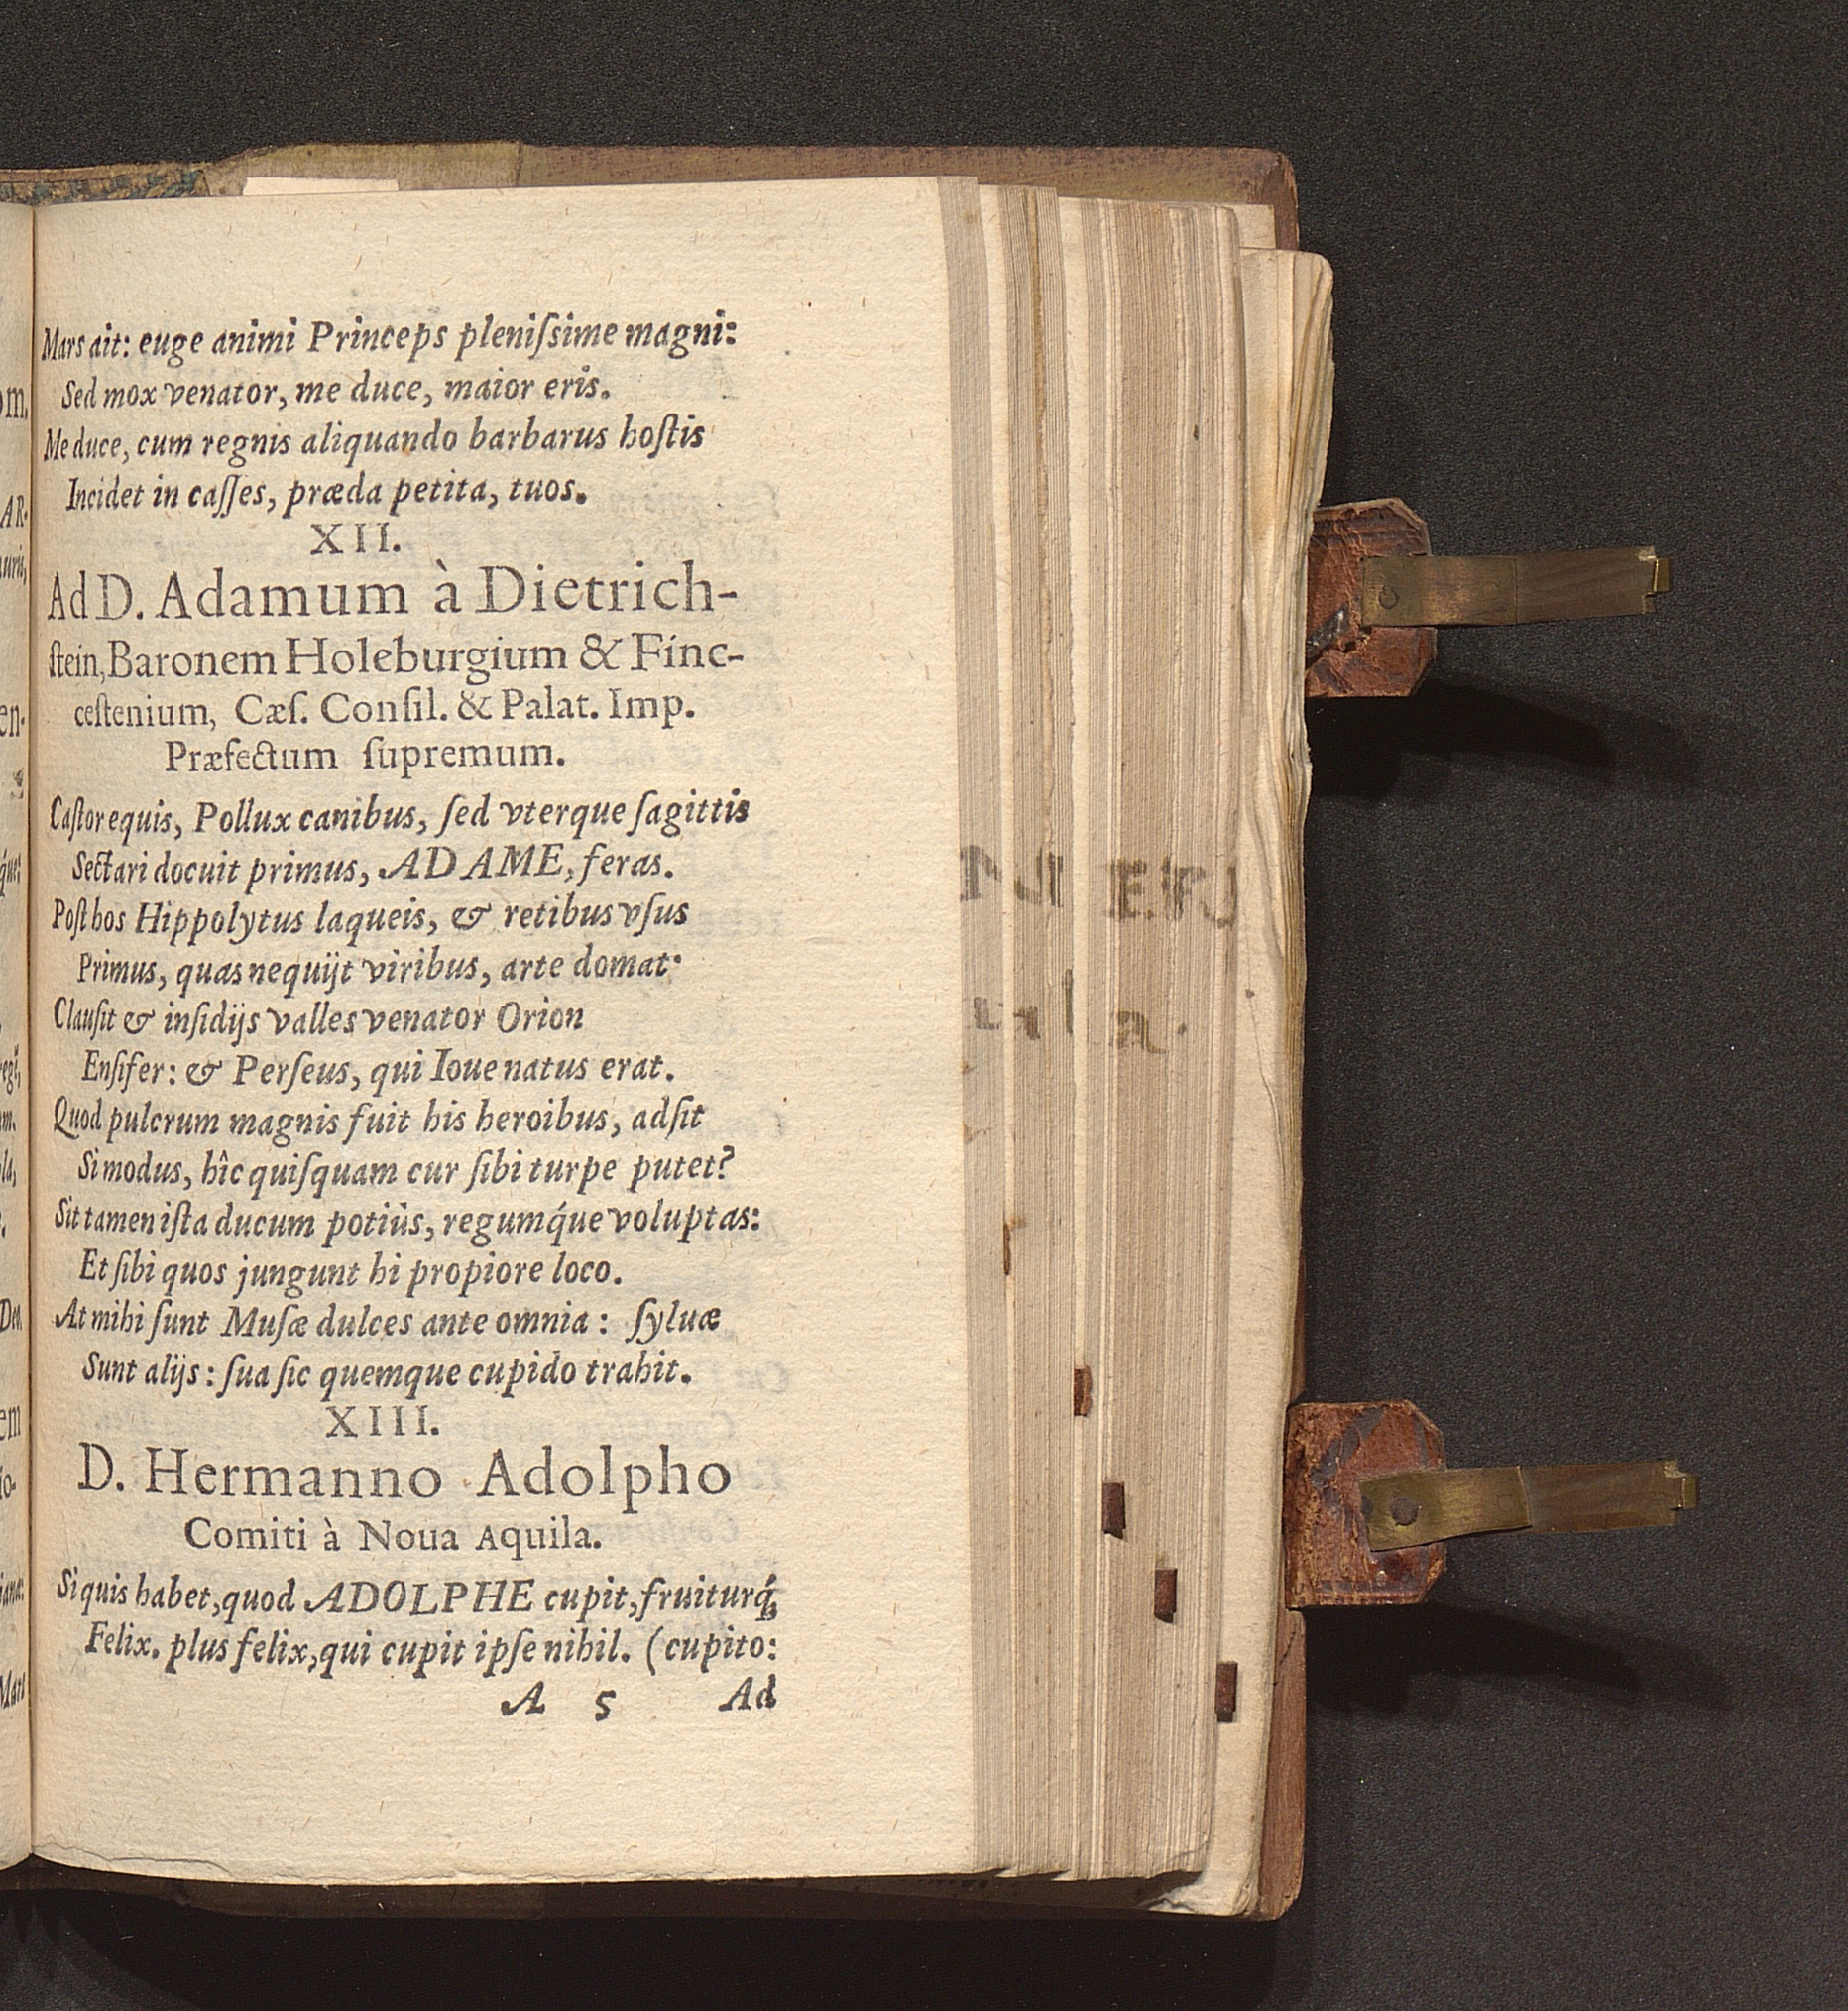 Mars ait: euge animi Princeps pleniſsime magni:
Sed mox venator, me duce, maior eris.
Me duce, cum regnis aliquando barbarus hoſtis
Incidet in caſſes, præda petita, tuos.
XII.
Ad D. Adamum à Dietrich-
ſtein, Baronem Holeburgium & Finc-
ceſtenium, Cæſ. Conſil. & Palat. Imp.
Præfectum ſupremum.
Caſtor equis, Pollux canibus, ſed vterque ſagittis
Sectari docuit primus, ADAME, feras.
Poſt hos Hippolytus laqueis, & retibus vſus
Primus, quas nequijt viribus, arte domat.
Clauſit & inſidijs valles venator Orion
Enſifer: & Perſeus, qui Ioue natus erat.
Quod pulcrum magnis fuit his heroibus, adſit
Si modus, hîc quiſquam cur ſibi turpe putet?
Sit tamen iſta ducum potiùs, regumq́ue voluptas:
Et ſibi quos jungunt hi propiore loco.
At mihi ſunt Muſæ dulces ante omnia: ſyluæ
Sunt alijs: ſua ſic quemque cupido trahit.
XIII.
D. Hermanno Adolpho
Comiti à Noua Aquila.
Si quis habet, quod ADOLPHE cupit, fruiturq́;
Felix. plus felix, qui cupit ipſe nihil. (cupito:
A 5 Ad